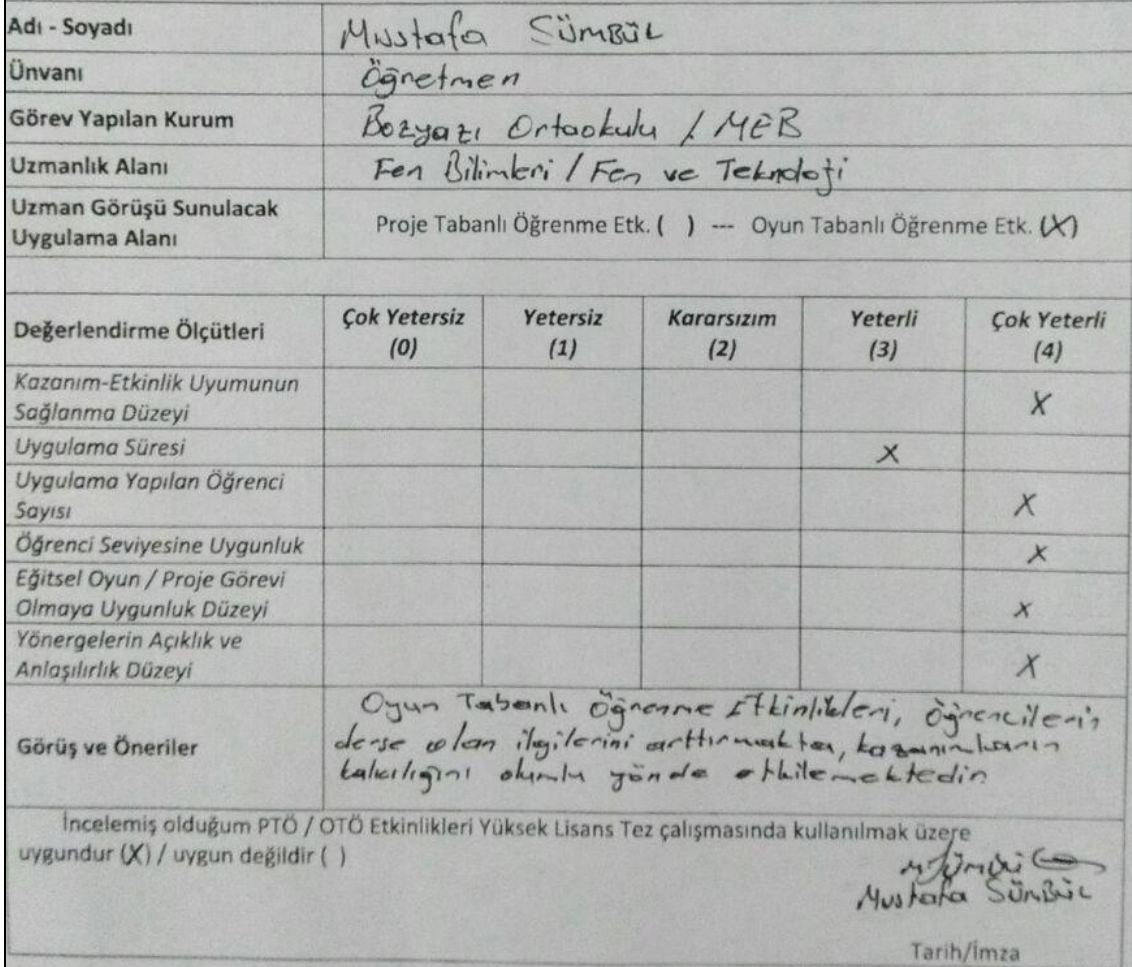 Adı - Soyadı Mustafa SÜMBÜL
Ünvanı Öğretmen
Görev Yapılan Kurum Bozyazı Ortaokulu / MEB
Uzmanlık Alanı Fen Bilimleri / Fen ve Teknoloji
Uzman Görüşü Sunulacak
Uygulama Alanı
Proje Tabanlı Öğrenme Etk. ( ) --- Oyun Tabanlı Öğrenme Etk. (X)
Değerlendirme Ölçütleri
Çok Yetersiz
(0)
Yetersiz
(1)
Kararsızım
(2)
Yeterli
(3)
Çok Yeterli
(4)
Kazanım-Etkinlik Uyumunun
Sağlanma Düzeyi X
Uygulama Süresi X
Uygulama Yapılan Öğrenci
Sayısı X
Öğrenci Seviyesine Uygunluk X
Eğitsel Oyun / Proje Görevi
Olmaya Uygunluk Düzeyi X
Yönergelerin Açıklık ve
Anlaşılırlık Düzeyi X
Görüş ve Öneriler
Oyun Tabanlı Öğrenme Etkinlikleri, öğrencilerin
derse olan ilgilerini arttırmakta, kazanımların
kalıcılığını olumlu yönde etkilemektedir
İncelemiş olduğum PTÖ / OTÖ Etkinlikleri Yüksek Lisans Tez çalışmasında kullanılmak üzere
uygundur (X) / uygun değildir ( )
Mustafa SÜMBÜL
Tarih/İmza